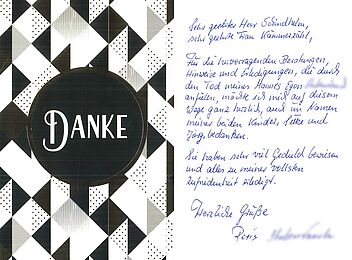 DANKE
Sehr geehrter Herr Schindhelm,
sehr geehrte Frau Kammerzahl,
Für die hervorragenden Beratungen,
Hinweise und Erledigungen, die durch
den Tod meines Mannes Egon
anfielen, möchte ich mich auf diesem
Wege ganz herzlich, auch im Namen
meiner beiden Kinder, Silke und
Jörg, bedanken.
Sie haben sehr viel Geduld bewiesen
und alles zu meiner vollsten
Zufriedenheit erledigt.
Herzliche Grüße